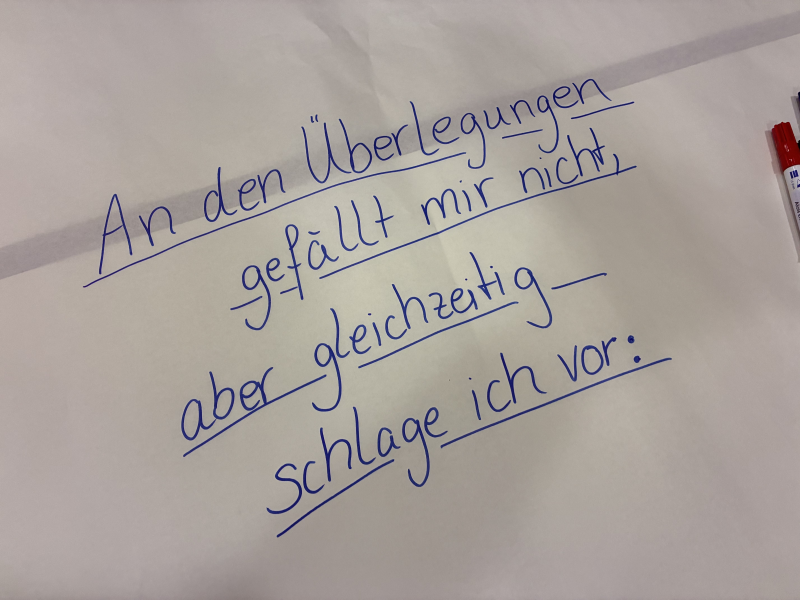 An den Überlegungen
gefällt mir nicht,
aber gleichzeitig
schlage ich vor: